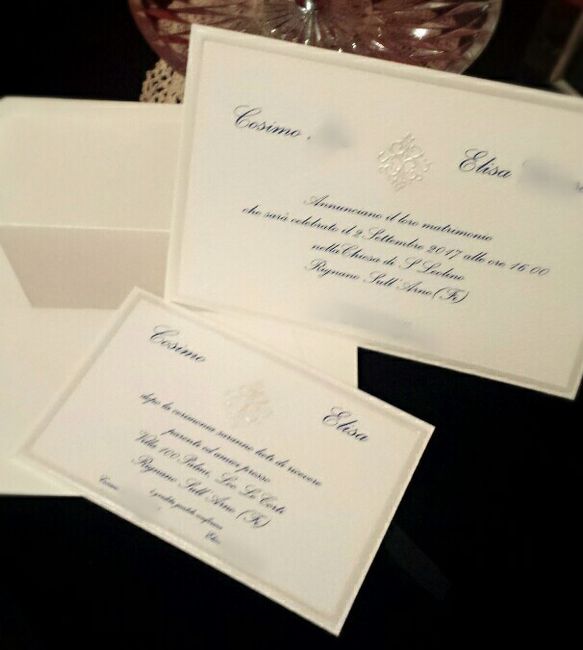 Cosimo
Elisa
Annunciano il loro matrimonio
che sarà celebrato il 2 Settembre 2017 alle ore 16:00
nella Chiesa di S Leolino
Rignano Sull'Arno (Fi)
Cosimo
Elisa
dopo la cerimonia saranno lieti di ricevere
parenti ed amici presso
Villa 100 Palmi, Loc. Le Corti
Rignano Sull'Arno (Fi)
è gradita gentile conferma